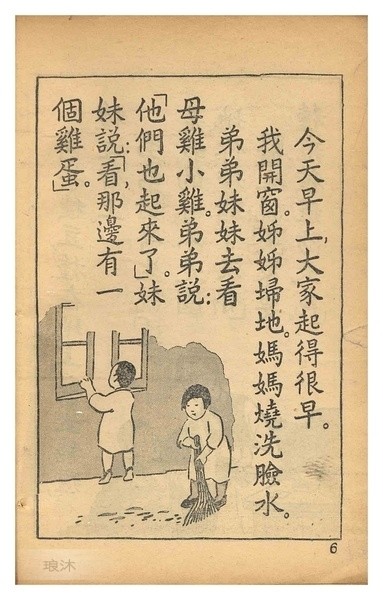 今天早上，大家起得很早。
我開窗。姊姊埽地。媽媽燒洗臉水。
弟弟妹妹去看
母雞小雞。弟弟說：
「他們也起來了。」妹
妹說：「看，那邊有一
個雞蛋」。
6
琅沐